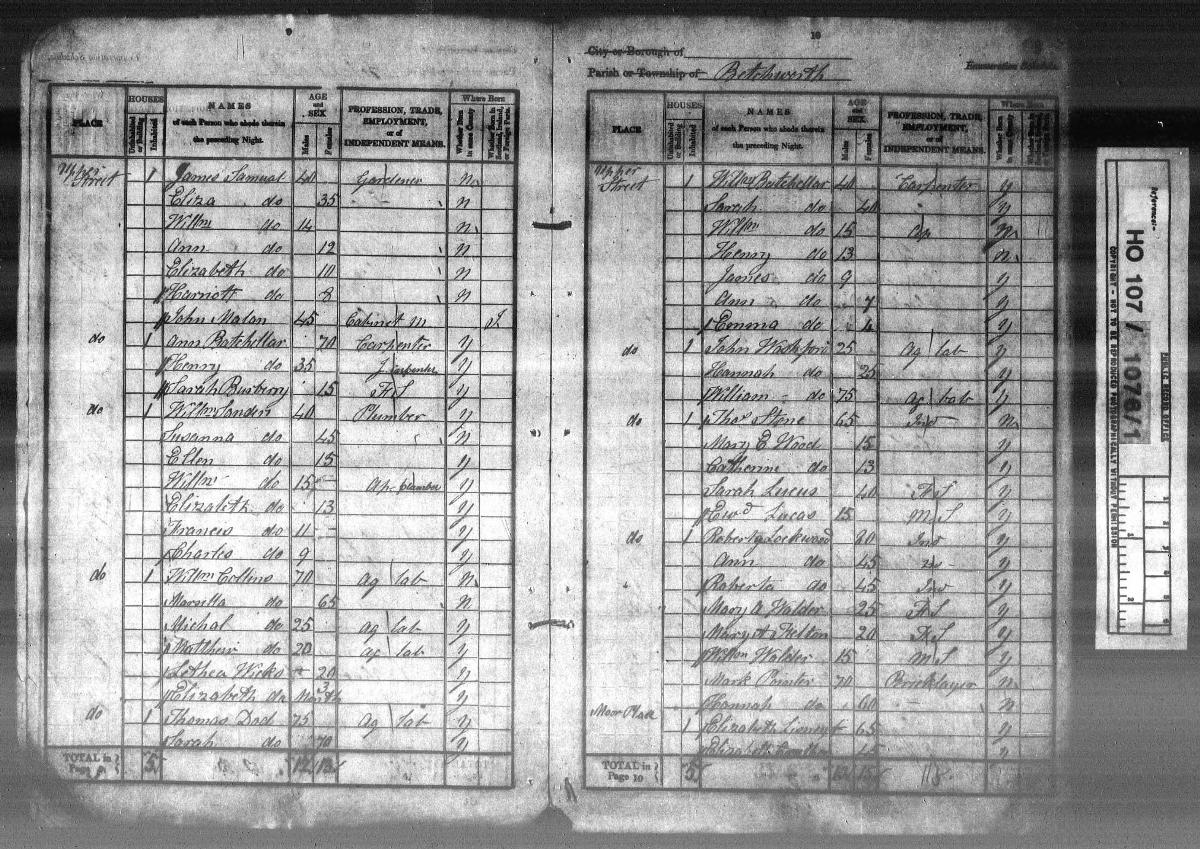 9
PLACE
HOUSES
Uninhabited or Building
Inhabited
NAMES
of each Person who abode therein
the preceding Night.
AGE and SEX
Males
Females
PROFESSION, TRADE, EMPLOYMENT, or of INDEPENDENT MEANS.
Where Born
Whether Born in same County
Whether Born in Scotland, Ireland, or Foreign Parts.
Upper Street 1 James Samual 40 Gardener N
Eliza do 35 N
Willm do 14 N
Ann do 12 N
Elizabeth do 10 N
Harriott do 8 N
John Malan 45 Cabinet M
do 1 Ann Batchellar 70 Carpenter Y
Henry do 35 J Carpenter Y
Sarah Burberry 15 F.S Y
do 1 Willm Sanden 40 Plumber Y
Susanna do 45 N
Ellen do 15 Y
Willm do 15 Ap Plumber Y
Elizabeth do 13 Y
Francis do 11 Y
Charles do 9 Y
do 1 Willm Collins 70 Ag lab N
Marsella do 65 N
Michal do 25 Ag lab Y
Matthew do 20 Ag lab Y
Lethea Wicks 20 Y
Elizabeth do Month Y
do 1 Thomas Dod 75 Ag lab Y
Sarah do 70 Y
TOTAL in Page 9 5 12 13
10
City or Borough of
Parish or Township of Betchworth
Enumeration Schedule.
PLACE
HOUSES
Uninhabited or Building
Inhabited
NAMES
of each Person who abode therein
the preceding Night.
AGE and SEX
Males
Females
PROFESSION, TRADE, EMPLOYMENT, or of INDEPENDENT MEANS.
Where Born
Upper Street 1 Willm Batchellar 40 Carpenter Y
Sarah do 40 Y
Willm do 15 Ap N
Henry do 13 N
James do 9 Y
Ann do 7 Y
Emma do 4 Y
do 1 John Washford 25 Ag lab Y
Hannah do 25 Y
William do 75 Ag lab Y
do 1 Thos Stone 65 Ind N
Mary E Wood 15 Y
Catherine do 13 Y
Sarah Lucus 40 F.S Y
Ewd Lucas 15 M.S Y
do 1 Lockwood 20 Ind Y
Ann do 45 Y
Roberta do 45 Ind Y
Mary A Walder 25 F.S Y
Mary A 20 F.S Y
Willm Walder 15 M.S Y
Mark Pointer 70 Bricklayer N
Hannah do 60 N
Moor Place 1 Elizabeth 65 Y
Elizabeth
TOTAL in Page 10 5 118
Reference:-
HO 107 / 1078/1
COPYRIGHT - NOT TO BE REPRODUCED PHOTOGRAPHICALLY WITHOUT PERMISSION
PUBLIC RECORD OFFICE
1
2